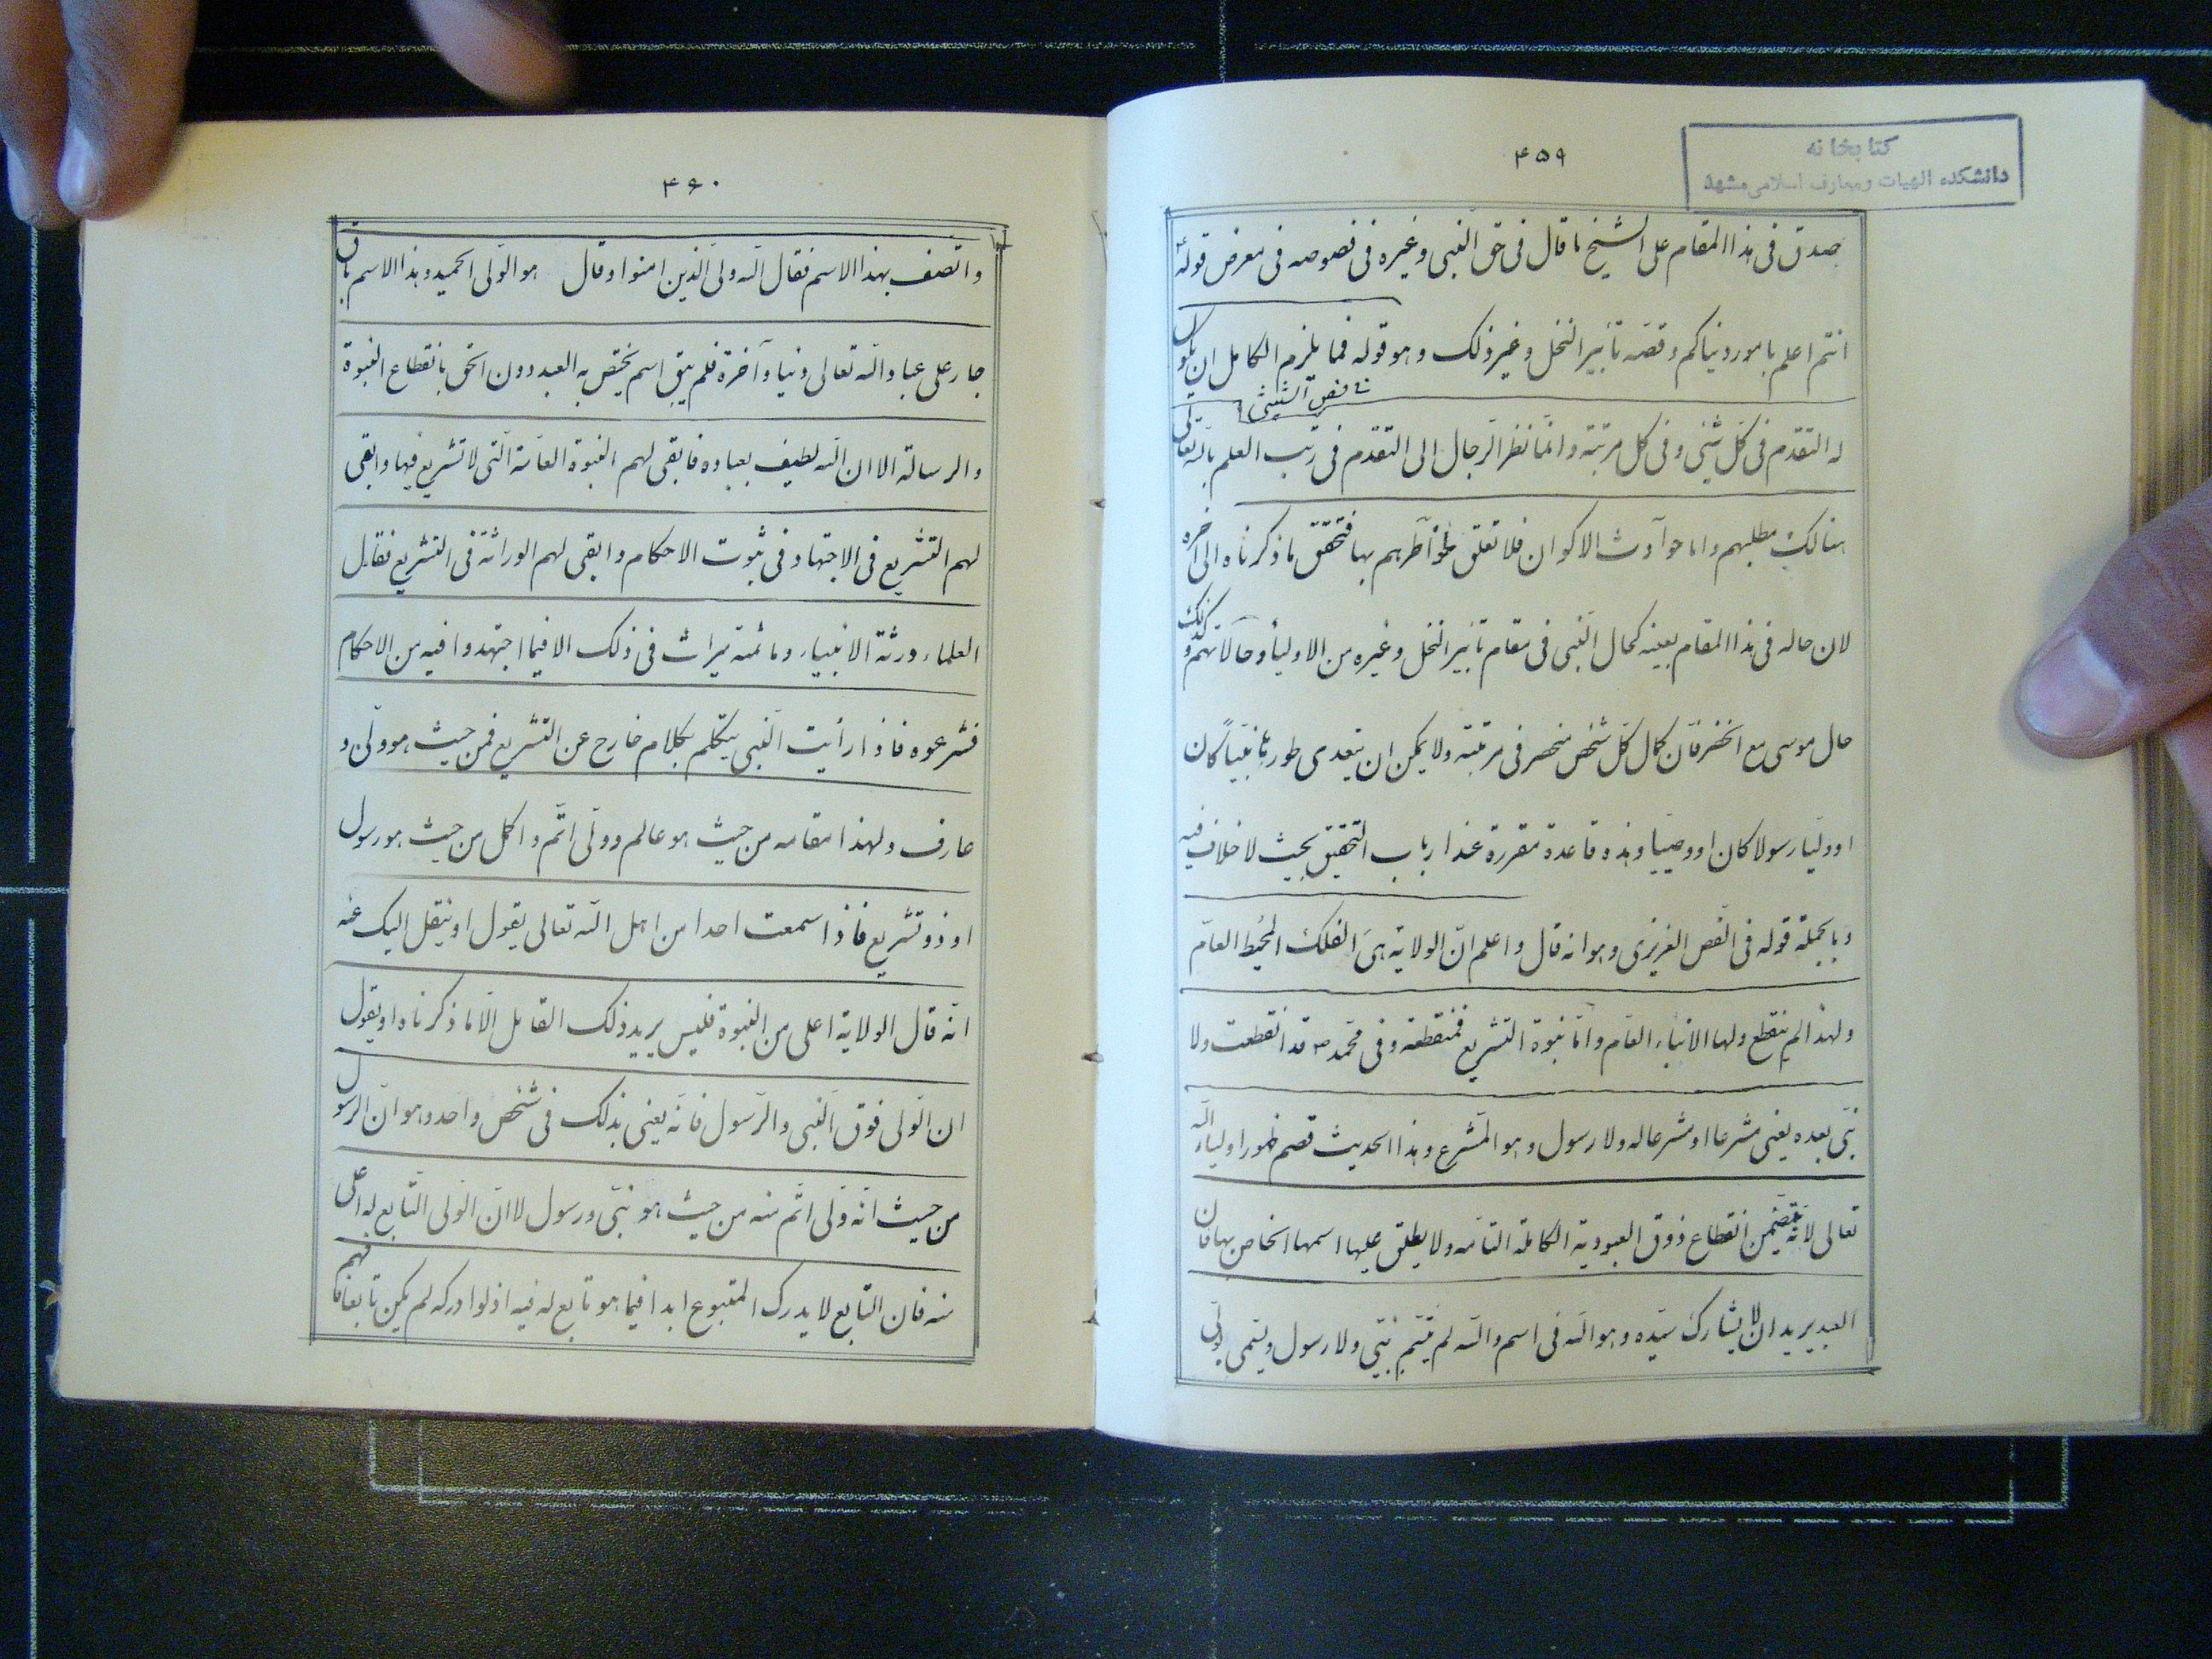 كتابخانه
دانشكده الهيات ومعارف اسلامى مشهد
۴۵۹
صدق فى هذا المقام على الشيخ ما قال فى حق النبى وغيره فى فصوصه فى معرض قوله
انتم اعلم بامور دنياكم وقصه تأبير النخل وغير ذلك وهو قوله فما يلزم الكامل ان يكون
فى فص الشيثى
له التقدم فى كل شيئ وفى كل مرتبة وانما نظر الرجال الى التقدم فى رتب العلم بالله تعالى
هنالك مطلبهم واما حوادث الاكوان فلا تعلق لخواطرهم بها فتحقق ما ذكرناه الى اخره
لان حاله فى هذا المقام بعينه كحال النبى فى مقام تأبير النخل وغيره من الاولياء وحالاتهم وكذلك
حال موسى مع الخضر فان كمال كل شخص منحصر فى مرتبته ولا يمكن ان يتعدى طورها نبيا كان
او وليا رسولا كان او وصيا وهذه قاعدة مقررة عند ارباب التحقيق بحيث لا خلاف فيه
وبالجملة قوله فى الفص العزيزى وهو انه قال واعلم ان الولاية هى الفلك المحيط العام
ولهذا لم ينقطع ولها الانباء العام واما نبوة التشريع فمنقطعة وفى محمد ص قد انقطعت ولا
نبى بعده يعنى مشرعا او مشرعا له ولا رسول وهو المشرع وهذا الحديث قصم ظهور اولياء الله
تعالى لانه يتضمن انقطاع ذوق العبودية الكاملة التامه ولا يطلق عليها اسمها الخاص بها فان
العبد يريد ان لا يشارك سيده وهو الله فى اسم والله لم يتسم بنبى ولا رسول ويسمى بولى
۴۶۰
واتصف بهذا الاسم فقال الله ولى الذين امنوا وقال هو الولى الحميد وهذا الاسم باق
جار على عباد الله تعالى دنيا وآخرة فلم يبق اسم يختص به العبد دون الحق بانقطاع النبوة
والرسالة الا ان الله لطيف بعباده فابقى لهم النبوة العامة التى لا تشريع فيها وابقى
لهم التشريع فى الاجتهاد فى ثبوت الاحكام وابقى لهم الوراثة فى التشريع فقال
العلماء ورثة الانبياء وما ثمة ميراث فى ذلك الا فيما اجتهدوا فيه من الاحكام
فشرعوه فاذا رأيت النبى يتكلم بكلام خارج عن التشريع فمن حيث هو ولى و
عارف ولهذا مقامه من حيث هو عالم وولى اتم واكمل من حيث هو رسول
او ذو تشريع فاذا سمعت احدا من اهل الله تعالى يقول او ينقل اليك عنه
انه قال الولاية اعلى من النبوة فليس يريد ذلك القائل الا ما ذكرناه او يقول
ان الولى فوق النبى والرسول فانه يعنى بذلك فى شخص واحد وهو ان الرسول
من حيث انه ولى اتم منه من حيث هو نبى ورسول لا ان الولى التابع له اعلى
منه فان التابع لا يدرك المتبوع ابدا فيما هو تابع له فيه اذ لو ادركه لم يكن تابعا فافهم